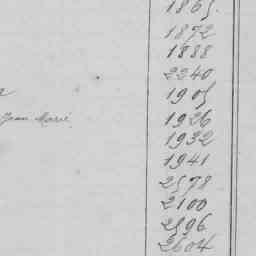 1865.
1872
1888
2240
1905
Jean Marie 1926
1932
1941
2578
2100
2596
2604